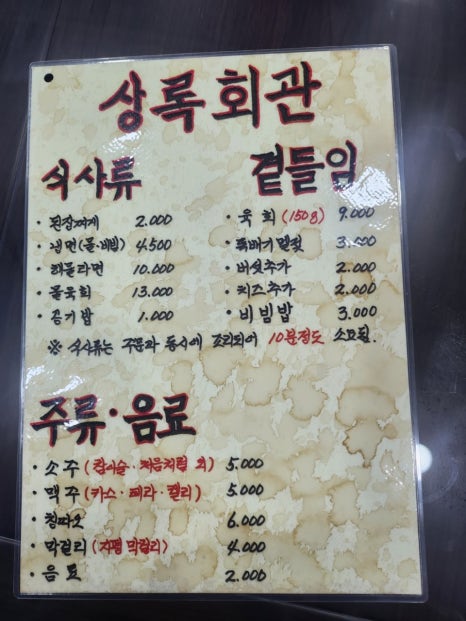 상록회관
식사류
· 된장찌게 2.000
· 냉면(물·비빔) 4.500
· 해물라면 10.000
· 물육회 13.000
· 공기밥 1.000
곁들임
· 육회(150g) 9.000
· 뚝배기알찜 3.000
· 버섯추가 2.000
· 치즈추가 2.000
· 비빔밥 3.000
※ 식사류는 주문과 동시에 조리되어 10분정도 소요됨.
주류·음료
· 소주(참이슬·처음처럼 외) 5.000
· 맥주(카스·테라·켈리) 5.000
· 칭따오 6.000
· 막걸리(지평막걸리) 4.000
· 음료 2.000